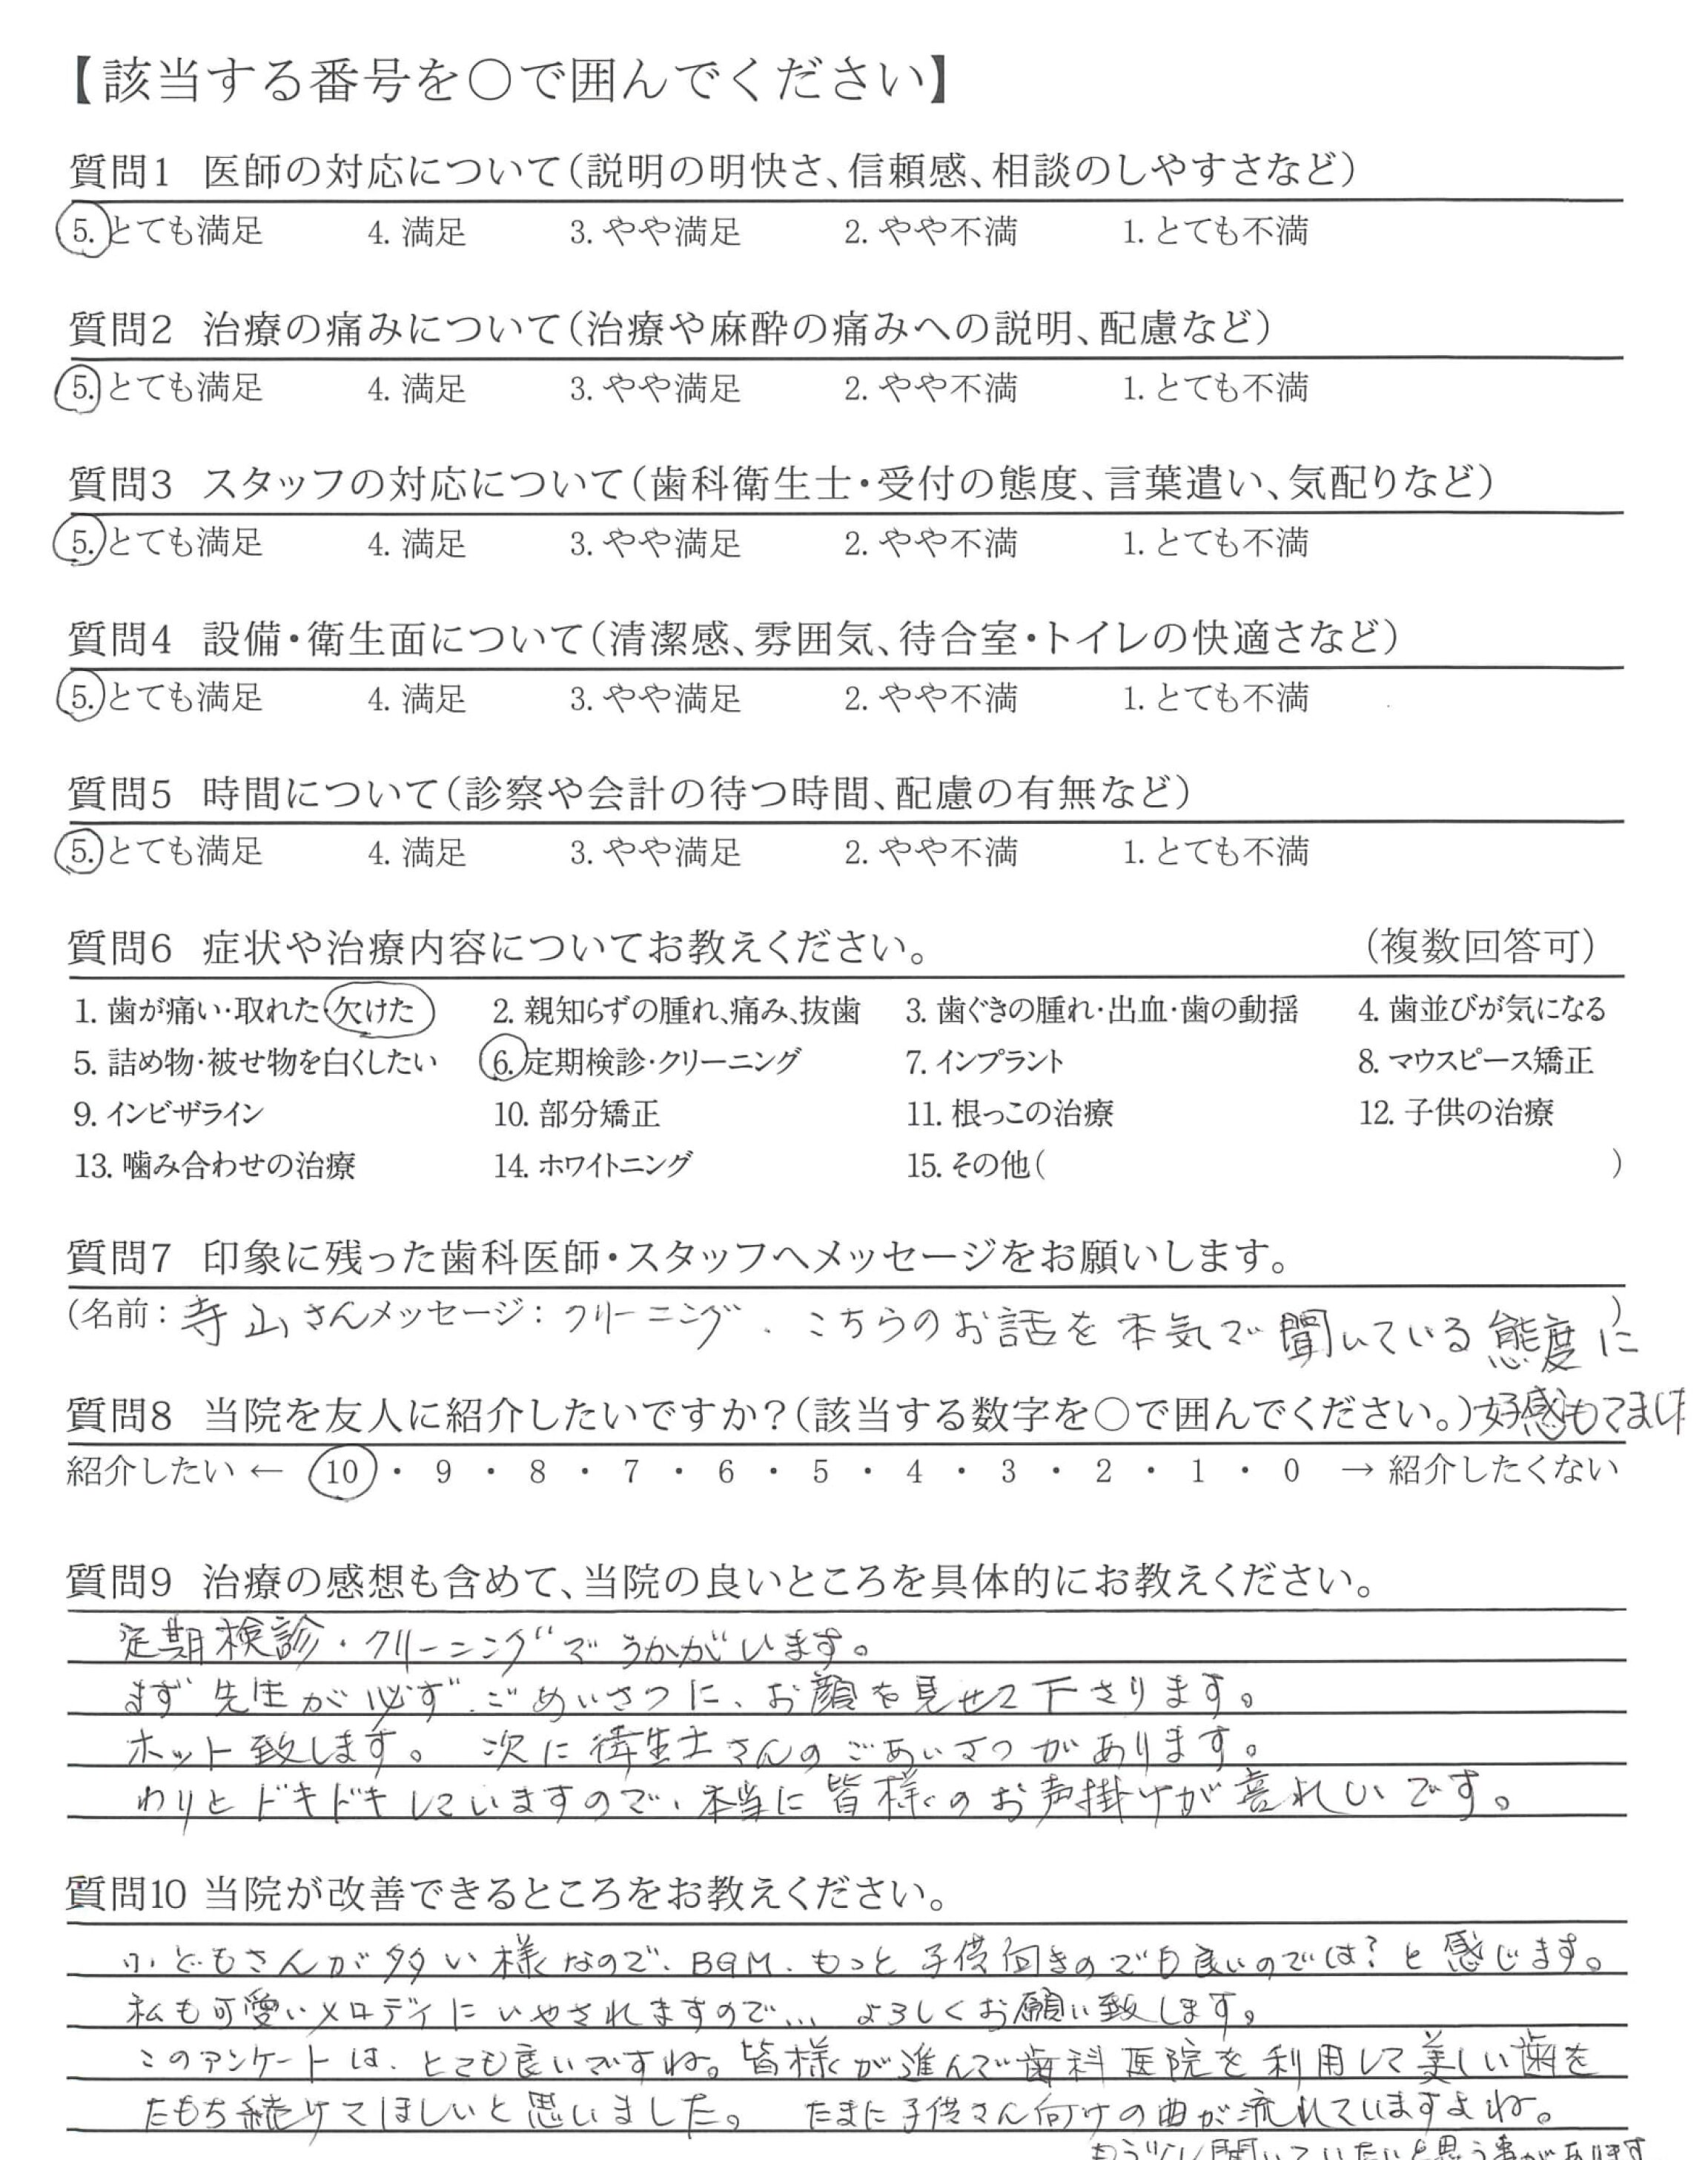 【該当する番号を○で囲んでください】
質問1 医師の対応について(説明の明快さ、信頼感、相談のしやすさなど)
5. とても満足 4. 満足 3. やや満足 2. やや不満 1. とても不満
質問2 治療の痛みについて(治療や麻酔の痛みへの説明、配慮など)
5. とても満足 4. 満足 3. やや満足 2. やや不満 1. とても不満
質問3 スタッフの対応について(歯科衛生士・受付の態度、言葉遣い、気配りなど)
5. とても満足 4. 満足 3. やや満足 2. やや不満 1. とても不満
質問4 設備・衛生面について(清潔感、雰囲気、待合室・トイレの快適さなど)
5. とても満足 4. 満足 3. やや満足 2. やや不満 1. とても不満
質問5 時間について(診察や会計の待つ時間、配慮の有無など)
5. とても満足 4. 満足 3. やや満足 2. やや不満 1. とても不満
質問6 症状や治療内容についてお教えください。 (複数回答可)
1. 歯が痛い・取れた・欠けた 2. 親知らずの腫れ、痛み、抜歯 3. 歯ぐきの腫れ・出血・歯の動揺 4. 歯並びが気になる
5. 詰め物・被せ物を白くしたい 6. 定期検診・クリーニング 7. インプラント 8. マウスピース矯正
9. インビザライン 10. 部分矯正 11. 根っこの治療 12. 子供の治療
13. 噛み合わせの治療 14. ホワイトニング 15. その他( )
質問7 印象に残った歯科医師・スタッフへメッセージをお願いします。
(名前: 寺山さん メッセージ: クリーニング、こちらのお話を本気で聞いている態度に )
好感もてました
質問8 当院を友人に紹介したいですか?(該当する数字を○で囲んでください。)
紹介したい ← 10 ・ 9 ・ 8 ・ 7 ・ 6 ・ 5 ・ 4 ・ 3 ・ 2 ・ 1 ・ 0 → 紹介したくない
質問9 治療の感想も含めて、当院の良いところを具体的にお教えください。
定期検診・クリーニングでうかがいます。
まず先生が必ず、ごあいさつに、お顔を見せて下さります。
ホット致します。 次に衛生士さんのごあいさつがあります。
わりとドキドキしていますので、本当に皆様のお声掛けが喜れしいです。
質問10 当院が改善できるところをお教えください。
小どもさんが多い様なので、BGM、もっと子供向きのでも良いのでは?と感じます。
私も可愛いメロディにいやされますので… よろしくお願い致します。
このアンケートは、とても良いですね。皆様が進んで歯科医院を利用して美しい歯を
たもち続けてほしいと思いました。 たまに子供さん向けの曲が流れていますよね。
もう少し聞いていたいと思う事があります